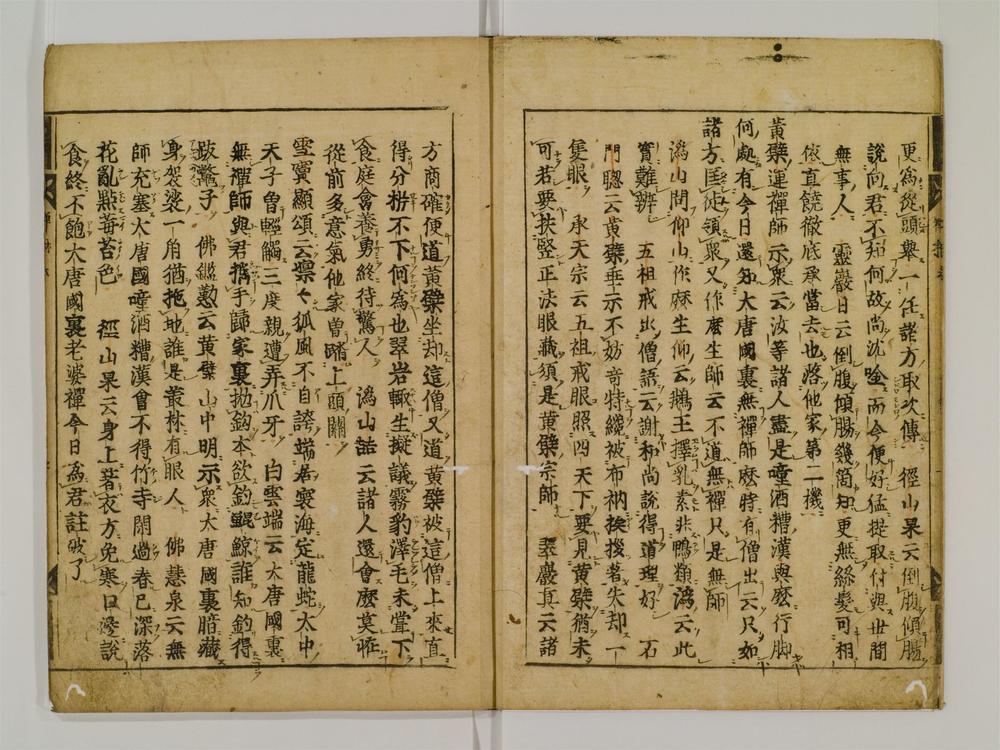 更爲從頭舉一任諸方取次傳　徑山杲云倒腹傾腸
說向君不知何故尚沈吟而今便好猛提取付與世間
無事人　靈巖日云倒腹傾腸幾箇知更無絲髮可相
依直饒徹底承當去也落他家第二機
黃檗運禪師示衆云汝等諸人盡是噇酒糟漢與麼行脚
何處有今日還知大唐國裏無禪師麼時有僧出云只如
諸方匡徒領衆又作麼生師云不道無禪只是無師
潙山問仰山作麽生仰云鵝王擇乳素非鴨類潙云此
實難辨　五祖戒出僧語云謝和尚說得道理好　石
門聰云黃檗垂示不妨竒特纔被布衲挨拶著失却一
隻眼　承天宗云五祖戒眼照四天下要見黃檗猶未
可若要扶竪正法眼藏須是黃檗宗師　翠巖真云諸
方商確便道黃檗坐却這僧又道黃檗被這僧上來直
得分拊不下何爲也翠岩輒生擬議霧豹澤毛未嘗下
食庭禽養勇終待驚人　潙山喆云諸人還會麼莫㕶
從前多意氣他家曽踏上頭關
雪竇顯頌云凛々孤風不自誇端居寰海定龍蛇大中
天子曽輕觸三度親遭弄爪牙　白雲端云大唐國裏
無禪師與君攜手歸家裏抛鈎本欲釣鯤鯨誰知釣得
跛鱉子　佛鑑懃云黃檗山中明示衆大唐國裏暗藏
身袈裟一角猶拖地誰是叢林有眼人　佛慧泉云無
師充塞大唐國噇酒糟漢會不得竹寺閑過春已深落
花亂點莓苔色　徑山杲云身上著衣方免寒口邊說
食終不飽大唐國裏老婆禪今日爲君註破了